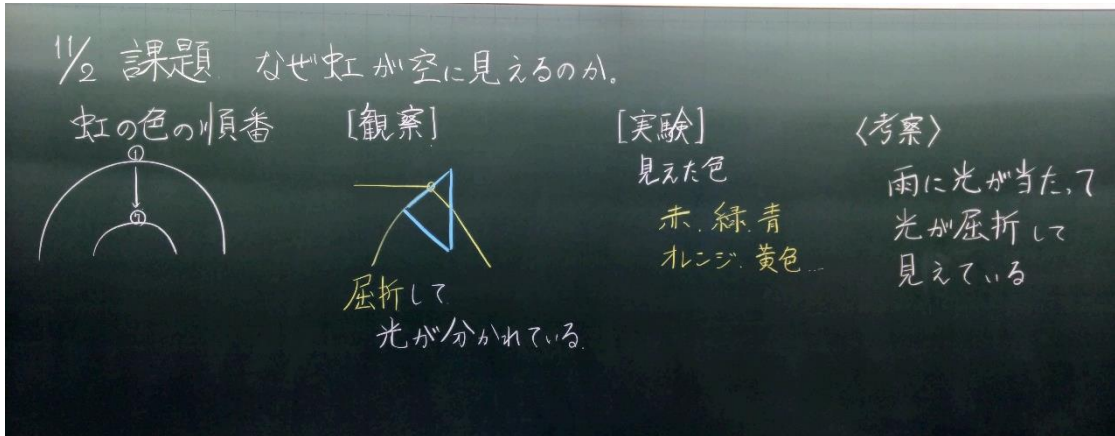 11/2 課題 なぜ虹が空に見えるのか。
虹の色の順番
①
⑦
[観察]
屈折して
光が分かれている.
[実験]
見えた色
赤.緑.青
オレンジ.黄色...
〈考察〉
雨に光が当たって
光が屈折して
見えている